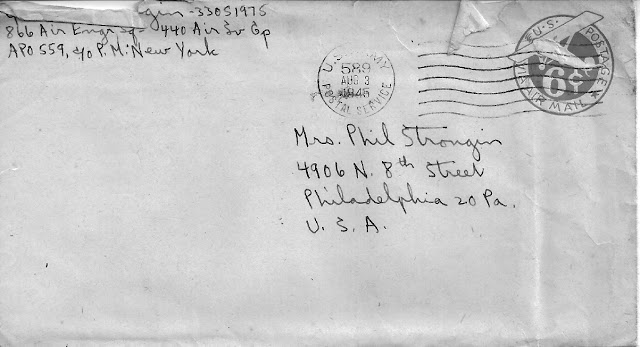 gin-33051975
866 Air Engr Sq - 440 Air Sv Gp
APO 559, c/o P.M. New York
U.S. ARMY
589
AUG 3
1945
POSTAL SERVICE
U.S. POSTAGE
6¢
VIA AIR MAIL
Mrs. Phil Strongin
4906 N. 8th Street
Philadelphia 20 Pa.
U. S. A.